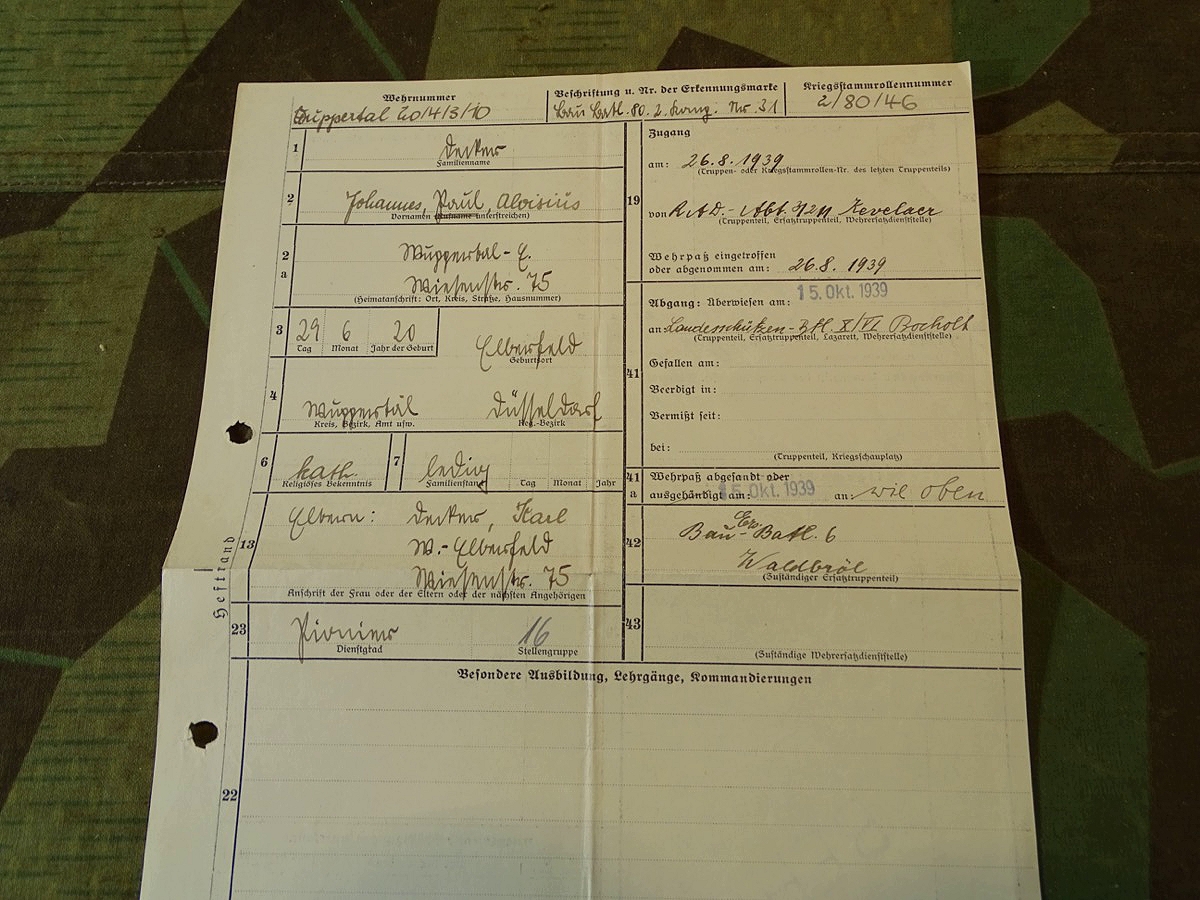 Wehrnummer
Wuppertal 20/4/3/10
Beschriftung u. Nr. der Erkennungsmarke
Bau Batl. 80. 2. Komp. Nr. 31
Kriegsstammrollennummer
2/80/46
1
Decker
Familienname
2
Johannes, Paul, Aloisius
Vornamen (Rufname unterstreichen)
2
a
Wuppertal-E.
Wiesenstr. 75
(Heimatanschrift: Ort, Kreis, Straße, Hausnummer)
3
29 6 20
Tag Monat Jahr der Geburt
Elberfeld
Geburtsort
4
Wuppertal
Kreis, Bezirk, Amt usw.
Düsseldorf
Reg.-Bezirk
6
kath.
Religiöses Bekenntnis
7
ledig
Familienstand Tag Monat Jahr
13
Eltern: Decker, Karl
W.-Elberfeld
Wiesenstr. 75
Anschrift der Frau oder der Eltern oder der nächsten Angehörigen
23
Pionier
Dienstgrad
16
Stellengruppe
Heftrand
19
Zugang
am: 26.8.1939
(Truppen- oder Kriegsstammrollen-Nr. des letzten Truppenteils)
von R.A.D.-Abt. Kevelaer
(Truppenteil, Ersatztruppenteil, Wehrersatzdienststelle)
Wehrpaß eingetroffen
oder abgenommen am: 26.8. 1939
41
Abgang: Überwiesen am: 15. Okt. 1939
an Landesschützen-Btl. X/VI Bocholt
(Truppenteil, Ersatztruppenteil, Lazarett, Wehrersatzdienststelle)
Gefallen am:
Beerdigt in:
Vermißt seit:
bei:
(Truppenteil, Kriegsschauplatz)
41
a
Wehrpaß abgesandt oder
ausgehändigt am: 15. Okt. 1939 an: wie oben
42
Bau-Ers. Batl. 6
Waldbröl
(Zuständiger Ersatztruppenteil)
43
(Zuständige Wehrersatzdienststelle)
Besondere Ausbildung, Lehrgänge, Kommandierungen
22